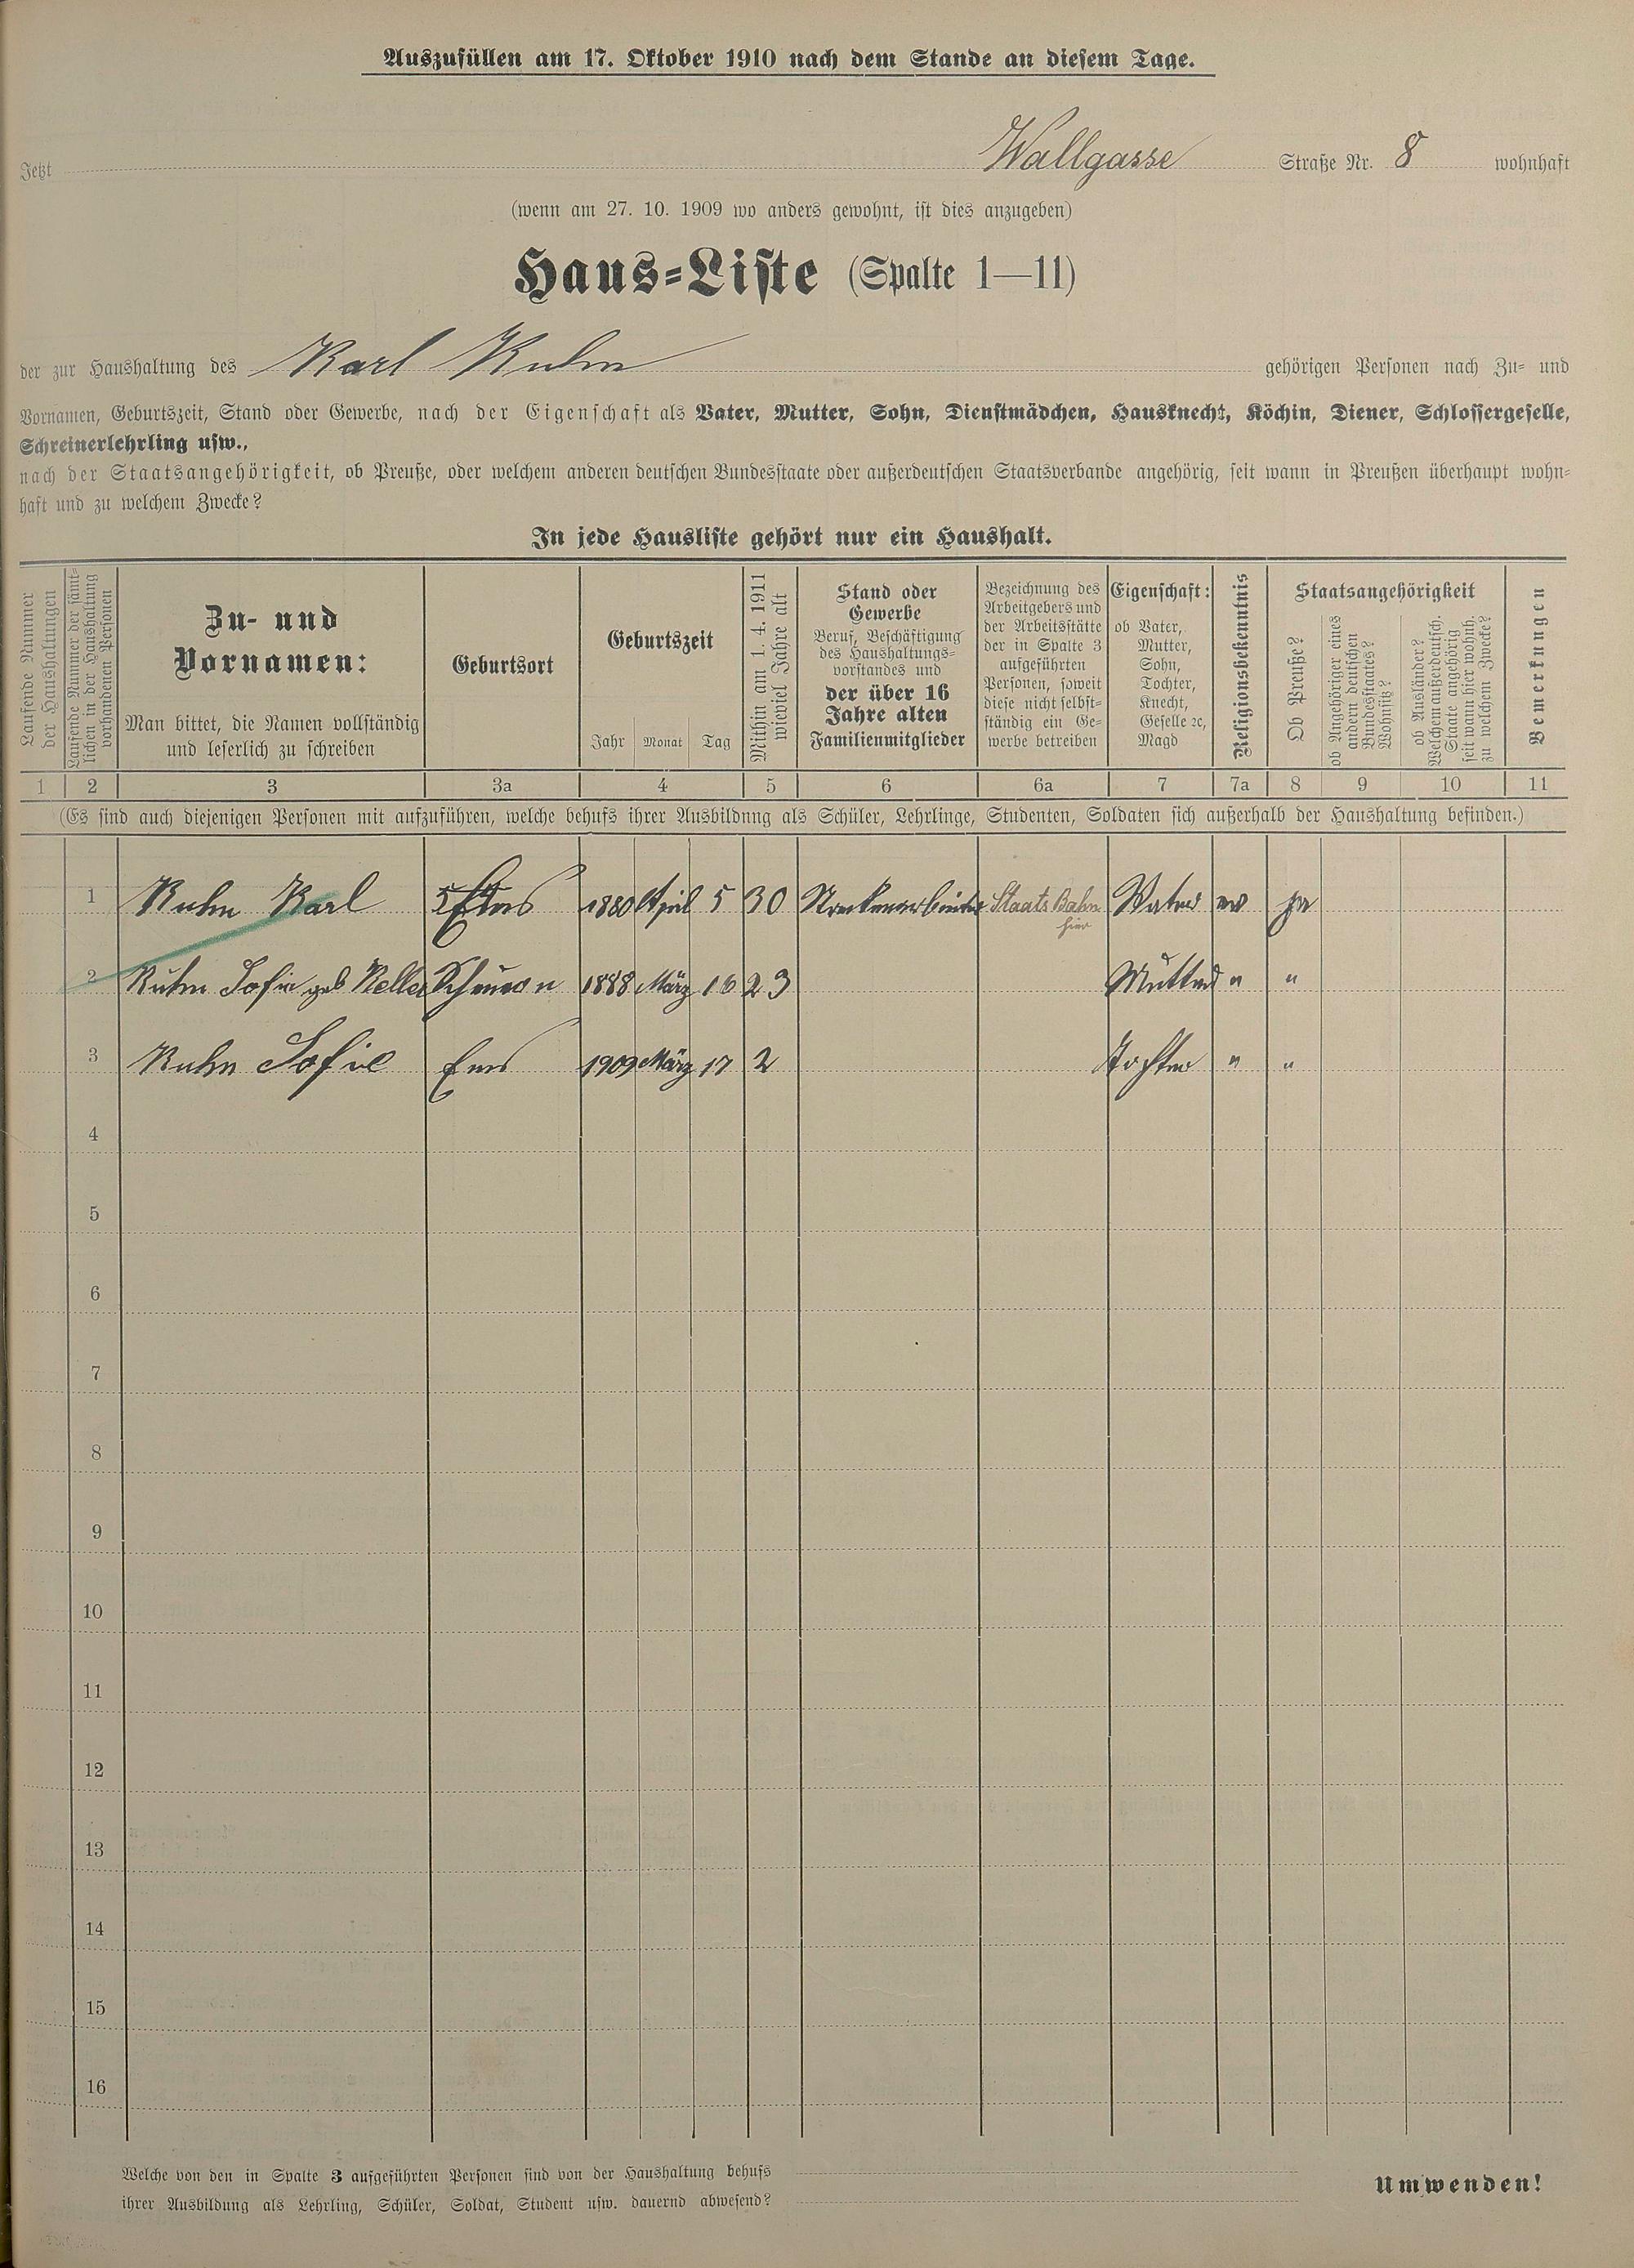 Auszufüllen am 17. Oktober 1910 nach dem Stande an diesem Tage.
Jetzt Wallgasse Straße Nr. 8 wohnhaft
(wenn am 27. 10. 1909 wo anders gewohnt, ist dies anzugeben)
Haus-Liste (Spalte 1—11)
der zur Haushaltung des Karl Kuhn gehörigen Personen nach Zu- und
Vornamen, Geburtszeit, Stand oder Gewerbe, nach der Eigenschaft als Vater, Mutter, Sohn, Dienstmädchen, Hausknecht, Köchin, Diener, Schlossergeselle,
Schreinerlehrling usw.,
nach der Staatsangehörigkeit, ob Preuße, oder welchem anderen deutschen Bundesstaate oder außerdeutschen Staatsverbande angehörig, seit wann in Preußen überhaupt wohn-
haft und zu welchem Zwecke?
In jede Hausliste gehört nur ein Haushalt.
Laufende Nummer
der Haushaltungen
Laufende Nummer der sämt-
lichen in der Haushaltung
vorhandenen Personen
Zu- und
Vornamen:
Man bittet, die Namen vollständig
und leserlich zu schreiben
Geburtsort
Geburtszeit
Jahr Monat Tag
Mithin am 1. 4. 1911
wieviel Jahre alt
Stand oder
Gewerbe
Beruf, Beschäftigung
des Haushaltungs-
vorstandes und
der über 16
Jahre alten
Familienmitglieder
Bezeichnung des
Arbeitgebers und
der Arbeitsstätte
der in Spalte 3
aufgeführten
Personen, soweit
diese nicht selbst-
ständig ein Ge-
werbe betreiben
Eigenschaft:
ob Vater,
Mutter,
Sohn,
Tochter,
Knecht,
Geselle ꝛc,
Magd
Religionsbekenntnis
Staatsangehörigkeit
Ob Preuße?
ob Angehöriger eines
andern deutschen
Bundesstaates?
Wohnsitz?
ob Ausländer?
Welchem außerdeutsch.
Staate angehörig
seit wann hier wohnh.
zu welchem Zwecke?
Bemerkungen
1 2 3 3a 4 5 6 6a 7 7a 8 9 10 11
(Es sind auch diejenigen Personen mit aufzuführen, welche behufs ihrer Ausbildung als Schüler, Lehrlinge, Studenten, Soldaten sich außerhalb der Haushaltung befinden.)
1 Kuhn Karl 1880 April 5 30 Streckenarbeiter Staats Bahn hier Vater ev ja
2 Kuhn Sofie geb Keller 1888 März 16 23 Mutter " "
3 Kuhn Sofie Ems 1909 März 17 2 Tochter " "
4
5
6
7
8
9
10
11
12
13
14
15
16
Welche von den in Spalte 3 aufgeführten Personen sind von der Haushaltung behufs
ihrer Ausbildung als Lehrling, Schüler, Soldat, Student usw. dauernd abwesend?
Umwenden!